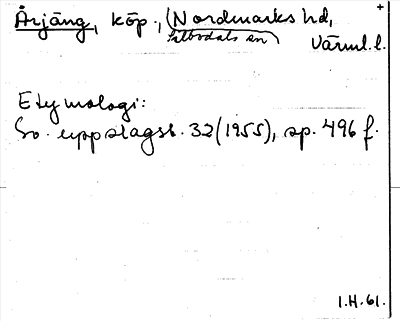 Årjäng, köp., (Nordmarks hd,
Silbodals sn)
Värml. l.
Etymologi:
Sv. uppslagsb. 32 (1955), sp. 496 f.
I.H. 61.